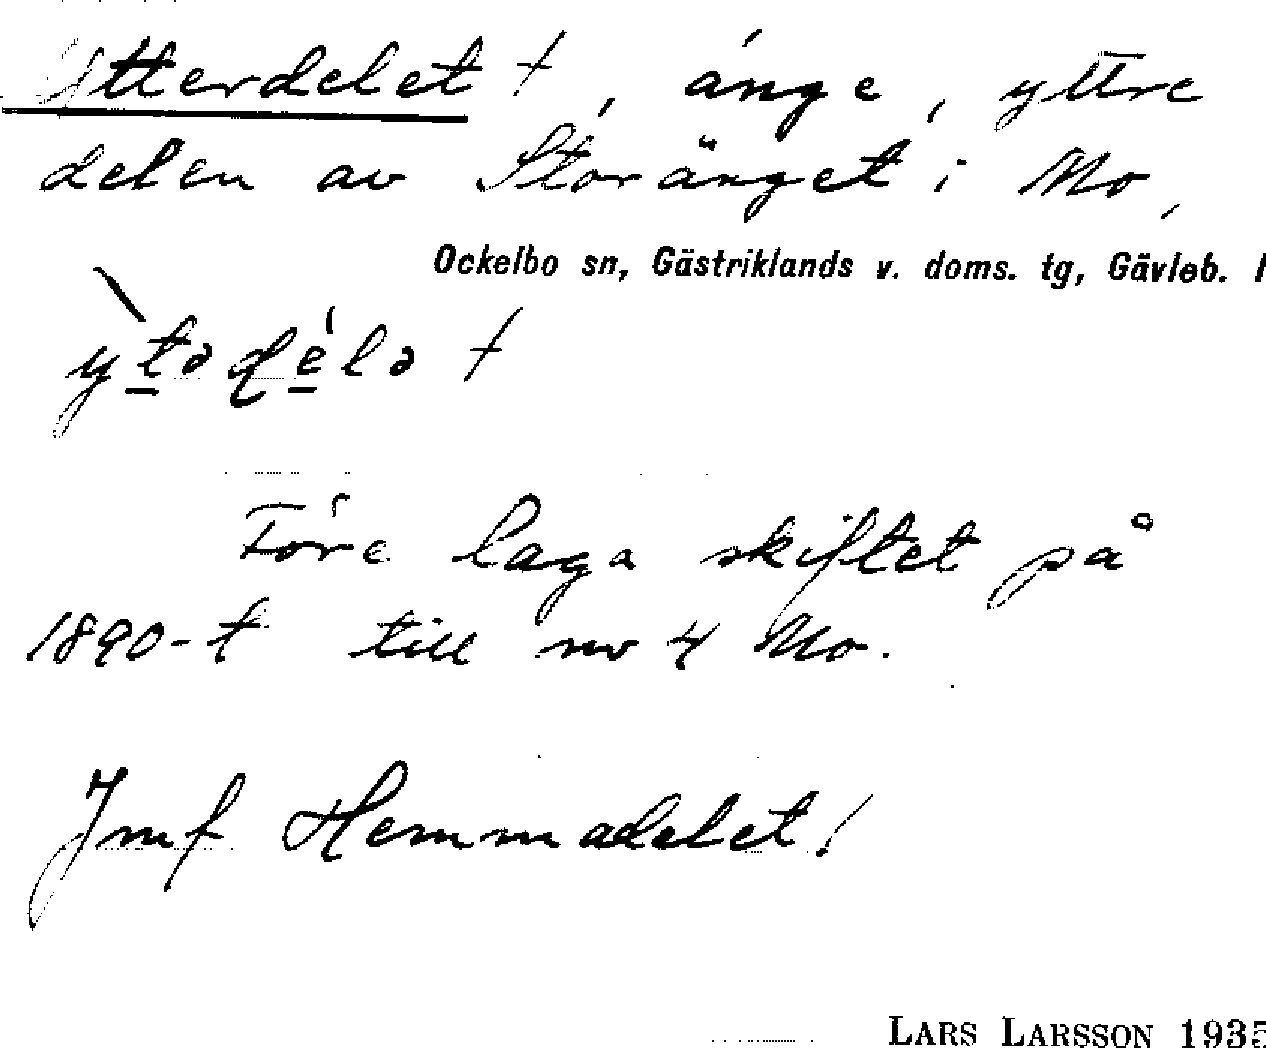 Ytterdelet †, änge, yttre
delen av Storänget i Mo,
Ockelbo sn, Gästriklands v. doms. tg, Gävleb. l
Före laga skiftet på
1890-t till nr 4 Mo.
Jmf Hemmadelet!
LARS LARSSON 1935